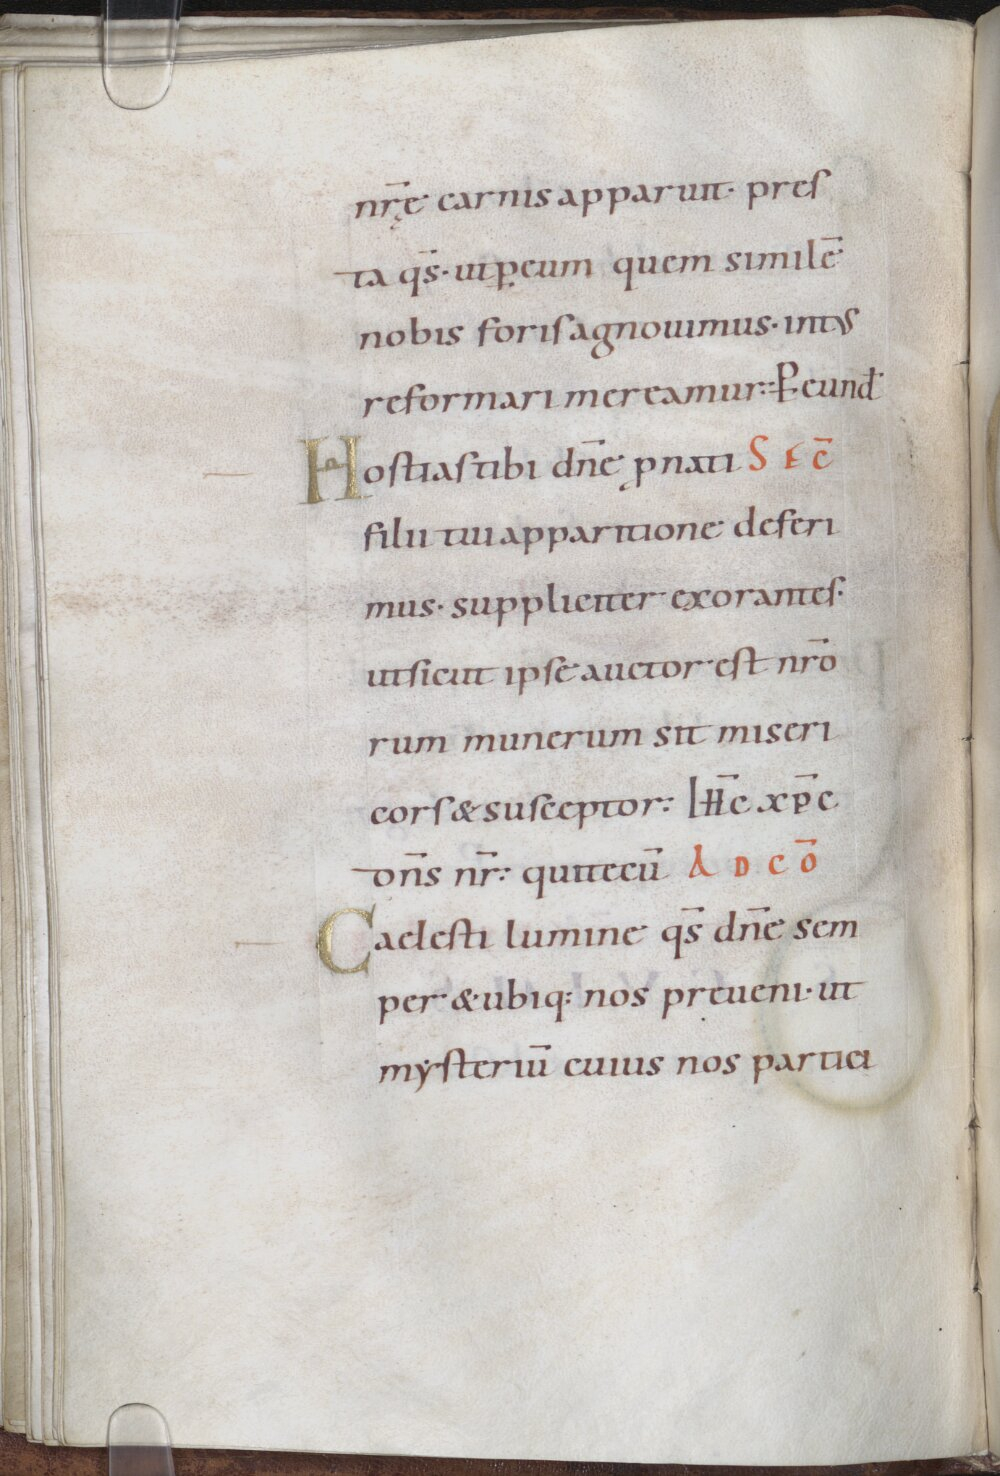 nr̄ę carnis apparuit· pres
ta qs̄· ut ꝑ eum quem similē
nobis foris agnouimus· intus
reformari mereamur: Ꝑ eund̄
Hostias tibi dn̄e ꝓ nati SEC̄
filii tui apparitione deferi
mus· suppliciter exorantes·
ut sicut ipse auctor est nr̄o
rum munerum sit miseri
cors & susceptor: IHC̄ xp̄c
dn̄s nr̄: qui tecū AD CŌ
Caelesti lumine qs̄ dn̄e sem
per & ubiq: nos pręueni· ut
mẏsteriū cuius nos partici